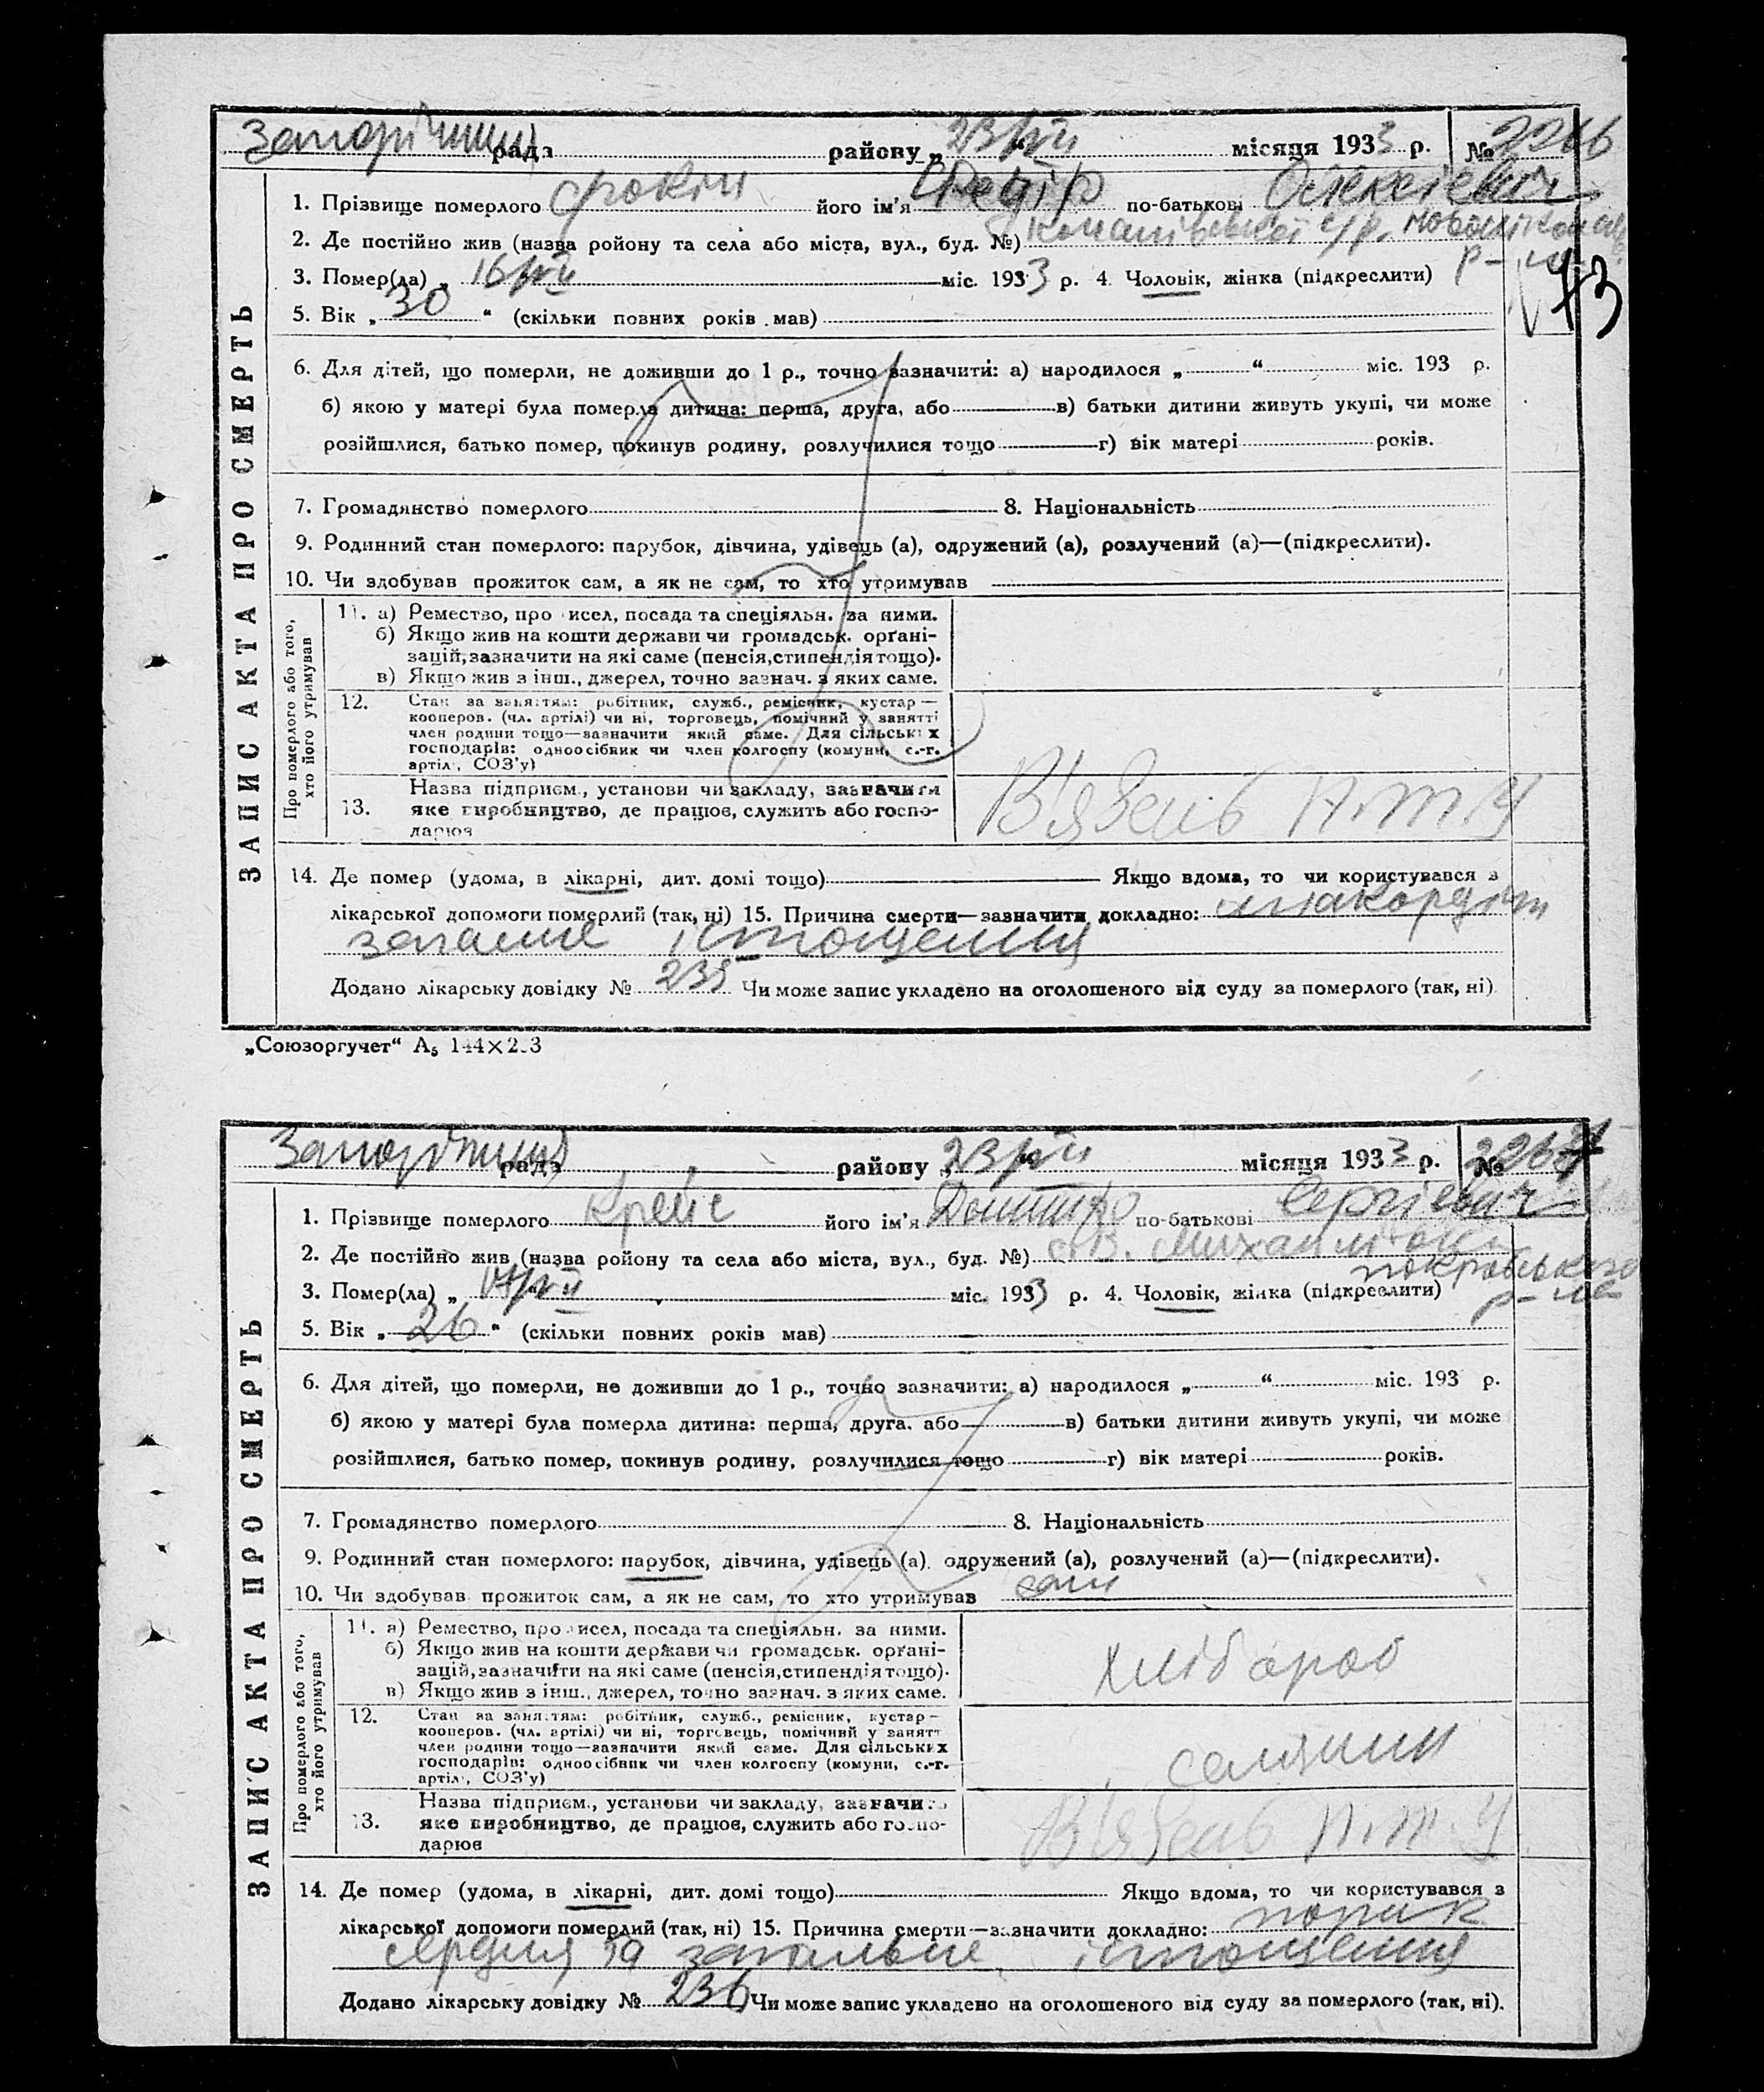 ЗАПИС АКТА ПРО СМЕРТЬ
рада району „23/VII“ місяця 1933 р. №
1. Прізвище померлого його ім'я Федір по-батькові Олексієвіч
2. Де постійно жив (назва ройону та села або міста, вул., буд. №)
р-на
3. Помер(ла) „16/VII міс. 1933 р. 4. Чоловік, жінка (підкреслити)
5. Вік „30“ (скільки повних років мав)
6. Для дітей, що померли, не доживши до 1 р., точно зазначити: а) народилося „ “ міс. 193 р.
б) якою у матері була померла дитина: перша, друга, або в) батьки дитини живуть укупі, чи може
розійшлися, батько помер, покинув родину, розлучилися тощо г) вік матері років.
7. Громадянство померлого 8. Національність
9. Родинний стан померлого: парубок, дівчина, удівець (а), одружений (а), розлучений (а)—(підкреслити).
10. Чи здобував прожиток сам, а як не сам, то хто утримував
Про померлого або того, хто його утримував
11. а) Ремество, про исел, посада та спеціяльн. за ними.
б) Якщо жив на кошти держави чи громадськ. орґані-
зацій, зазначити на які саме (пенсія, стипендія тощо).
в) Якщо жив з інш., джерел, точно зазнач. з яких саме.
12. Стан за заняттям: робітник, служб., ремісник, кустар—
кооперов. (чл. артілі) чи ні, торговець, помічний у занятті
член родини тощо—зазначити який саме. Для сільських
господарів: одноосібник чи член колгоспу (комуни, с.-г.
артіл., СОЗ'у)
13. Назва підприєм., установи чи закладу, зазначити
яке виробництво, де працює, служить або госпо-
дарює
В'язень п.т.у
14. Де помер (удома, в лікарні, дит. домі тощо) Якщо вдома, то чи користувався з
лікарської допомоги померлий (так, ні) 15. Причина смерти—зазначити докладно:
істощення
Додано лікарську довідку № 235 Чи може запис укладено на оголошеного від суду за померлого (так, ні)
„Союзоргучет“ А5 144×2 3
ЗАПИС АКТА ПРО СМЕРТЬ
рада району „23/VII“ місяця 1933 р. №
1. Прізвище померлого його ім'я Дмитро по-батькові Сергієвич
2. Де постійно жив (назва ройону та села або міста, вул., буд. №)
покровського
р-на
3. Помер(ла) „ міс. 1933 р. 4. Чоловік, жінка (підкреслити)
5. Вік „26“ (скільки повних років мав)
6. Для дітей, що померли, не доживши до 1 р., точно зазначити: а) народилося „ “ міс. 193 р.
б) якою у матері була померла дитина: перша, друга, або в) батьки дитини живуть укупі, чи може
розійшлися, батько помер, покинув родину, розлучилися тощо г) вік матері років.
7. Громадянство померлого 8. Національність
9. Родинний стан померлого: парубок, дівчина, удівець (а), одружений (а), розлучений (а)—(підкреслити).
10. Чи здобував прожиток сам, а як не сам, то хто утримував сам
Про померлого або того, хто його утримував
11. а) Ремество, про исел, посада та спеціяльн. за ними.
б) Якщо жив на кошти держави чи громадськ. орґані-
зацій, зазначити на які саме (пенсія, стипендія тощо).
в) Якщо жив з інш., джерел, точно зазнач. з яких саме.
хлібороб
12. Стан за заняттям: робітник, служб., ремісник, кустар—
кооперов. (чл. артілі) чи ні, торговець, помічний у занятт
член родини тощо—зазначити який саме. Для сільських
господарів: одноосібник чи член колгоспу (комуни, с.-г.
артіл., СОЗ'у)
селянин
13. Назва підприєм., установи чи закладу, зазначить
яке виробництво, де працює, служить або госпо-
дарює
В'язень п.т.у
14. Де помер (удома, в лікарні, дит. домі тощо) Якщо вдома, то чи користувався з
лікарської допомоги померлий (так, ні) 15. Причина смерти—зазначити докладно: порик
сердця та загальне істощення
Додано лікарську довідку № 236 Чи може запис укладено на оголошеного від суду за померлого (так, ні).